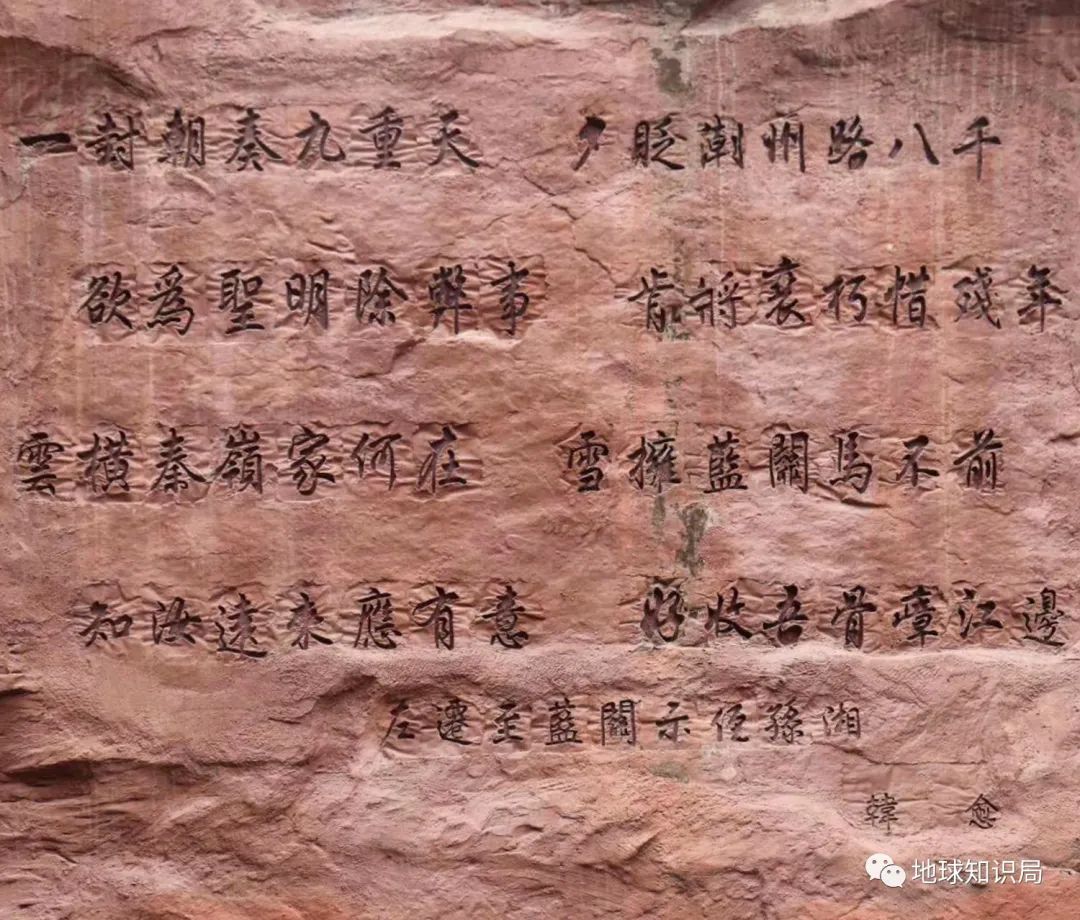 一封朝奏九重天 夕貶潮州路八千
欲為聖明除弊事 肯將衰朽惜殘年
雲橫秦嶺家何在 雪擁藍關馬不前
知汝遠來應有意 好收吾骨瘴江邊
左遷至藍關示侄孫湘
韓愈
地球知识局